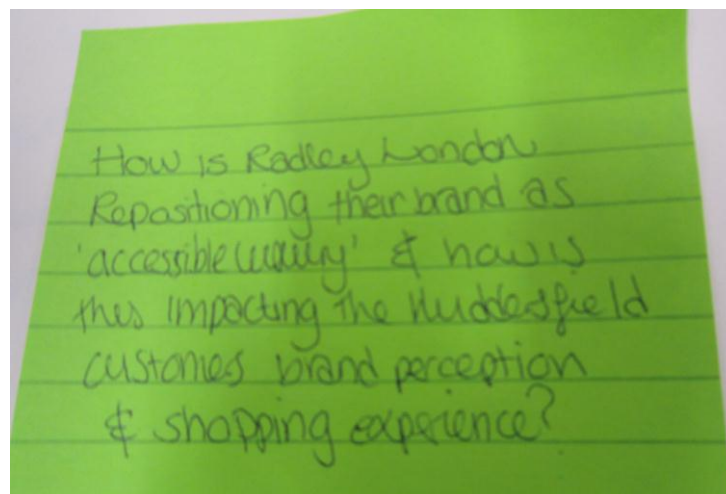 How is Radley London
Repositioning their brand as
'accessible luxury' & how is
this impacting the Huddersfield
customers brand perception
& shopping experience?